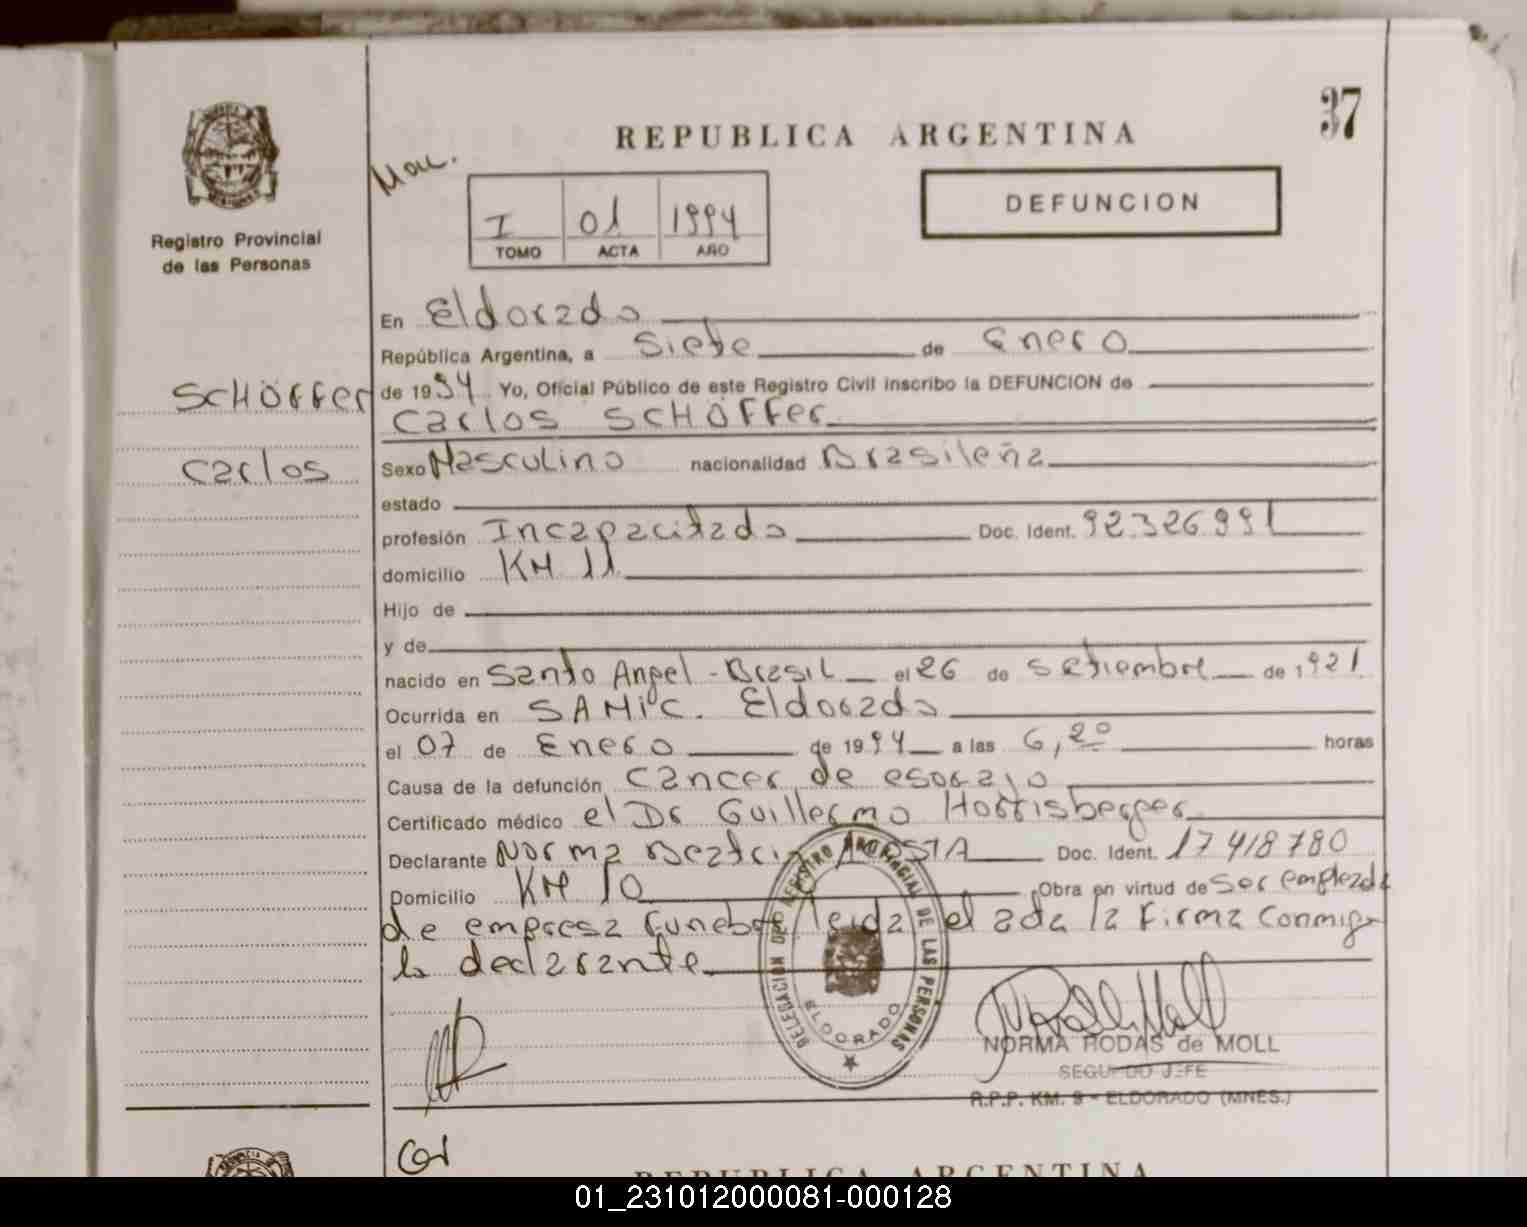 37
REPUBLICA ARGENTINA
DEFUNCION
I 01 1994
TOMO ACTA AÑO
Registro Provincial
de las Personas
SCHÖFFER
Carlos
En Eldorado
República Argentina, a Siete de Enero
de 1994 Yo, Oficial Público de este Registro Civil inscribo la DEFUNCION de
Carlos SCHÖFFer
Sexo Masculino nacionalidad Brasileña
estado
profesión Incapacitado Doc. Ident. 92.326.991
domicilio KM 11
Hijo de
y de
nacido en Santo Angel - Brasil el 26 de Setiembre de 1921
Ocurrida en SAMIC. Eldorado
el 07 de Enero de 1994 a las 6,20 horas
Causa de la defunción Cancer de esofajo
Certificado médico el Dr Guillermo Horrisberger
Declarante Norma Beatriz ACOSTA Doc. Ident. 17 418 780
Domicilio KM 10 Obra en virtud de Ser empleada
de empresa Funebre leida el acta la Firma Conmigo
la declarante
DELEGACION DO REGISTRO PROVINCIAL DE LAS PERSONAS
ELDORADO
NORMA RODAS de MOLL
SEGUNDO JEFE
R.P.P. KM. 9 - ELDORADO (MNES.)
REPUBLICA ARGENTINA
01_231012000081-000128